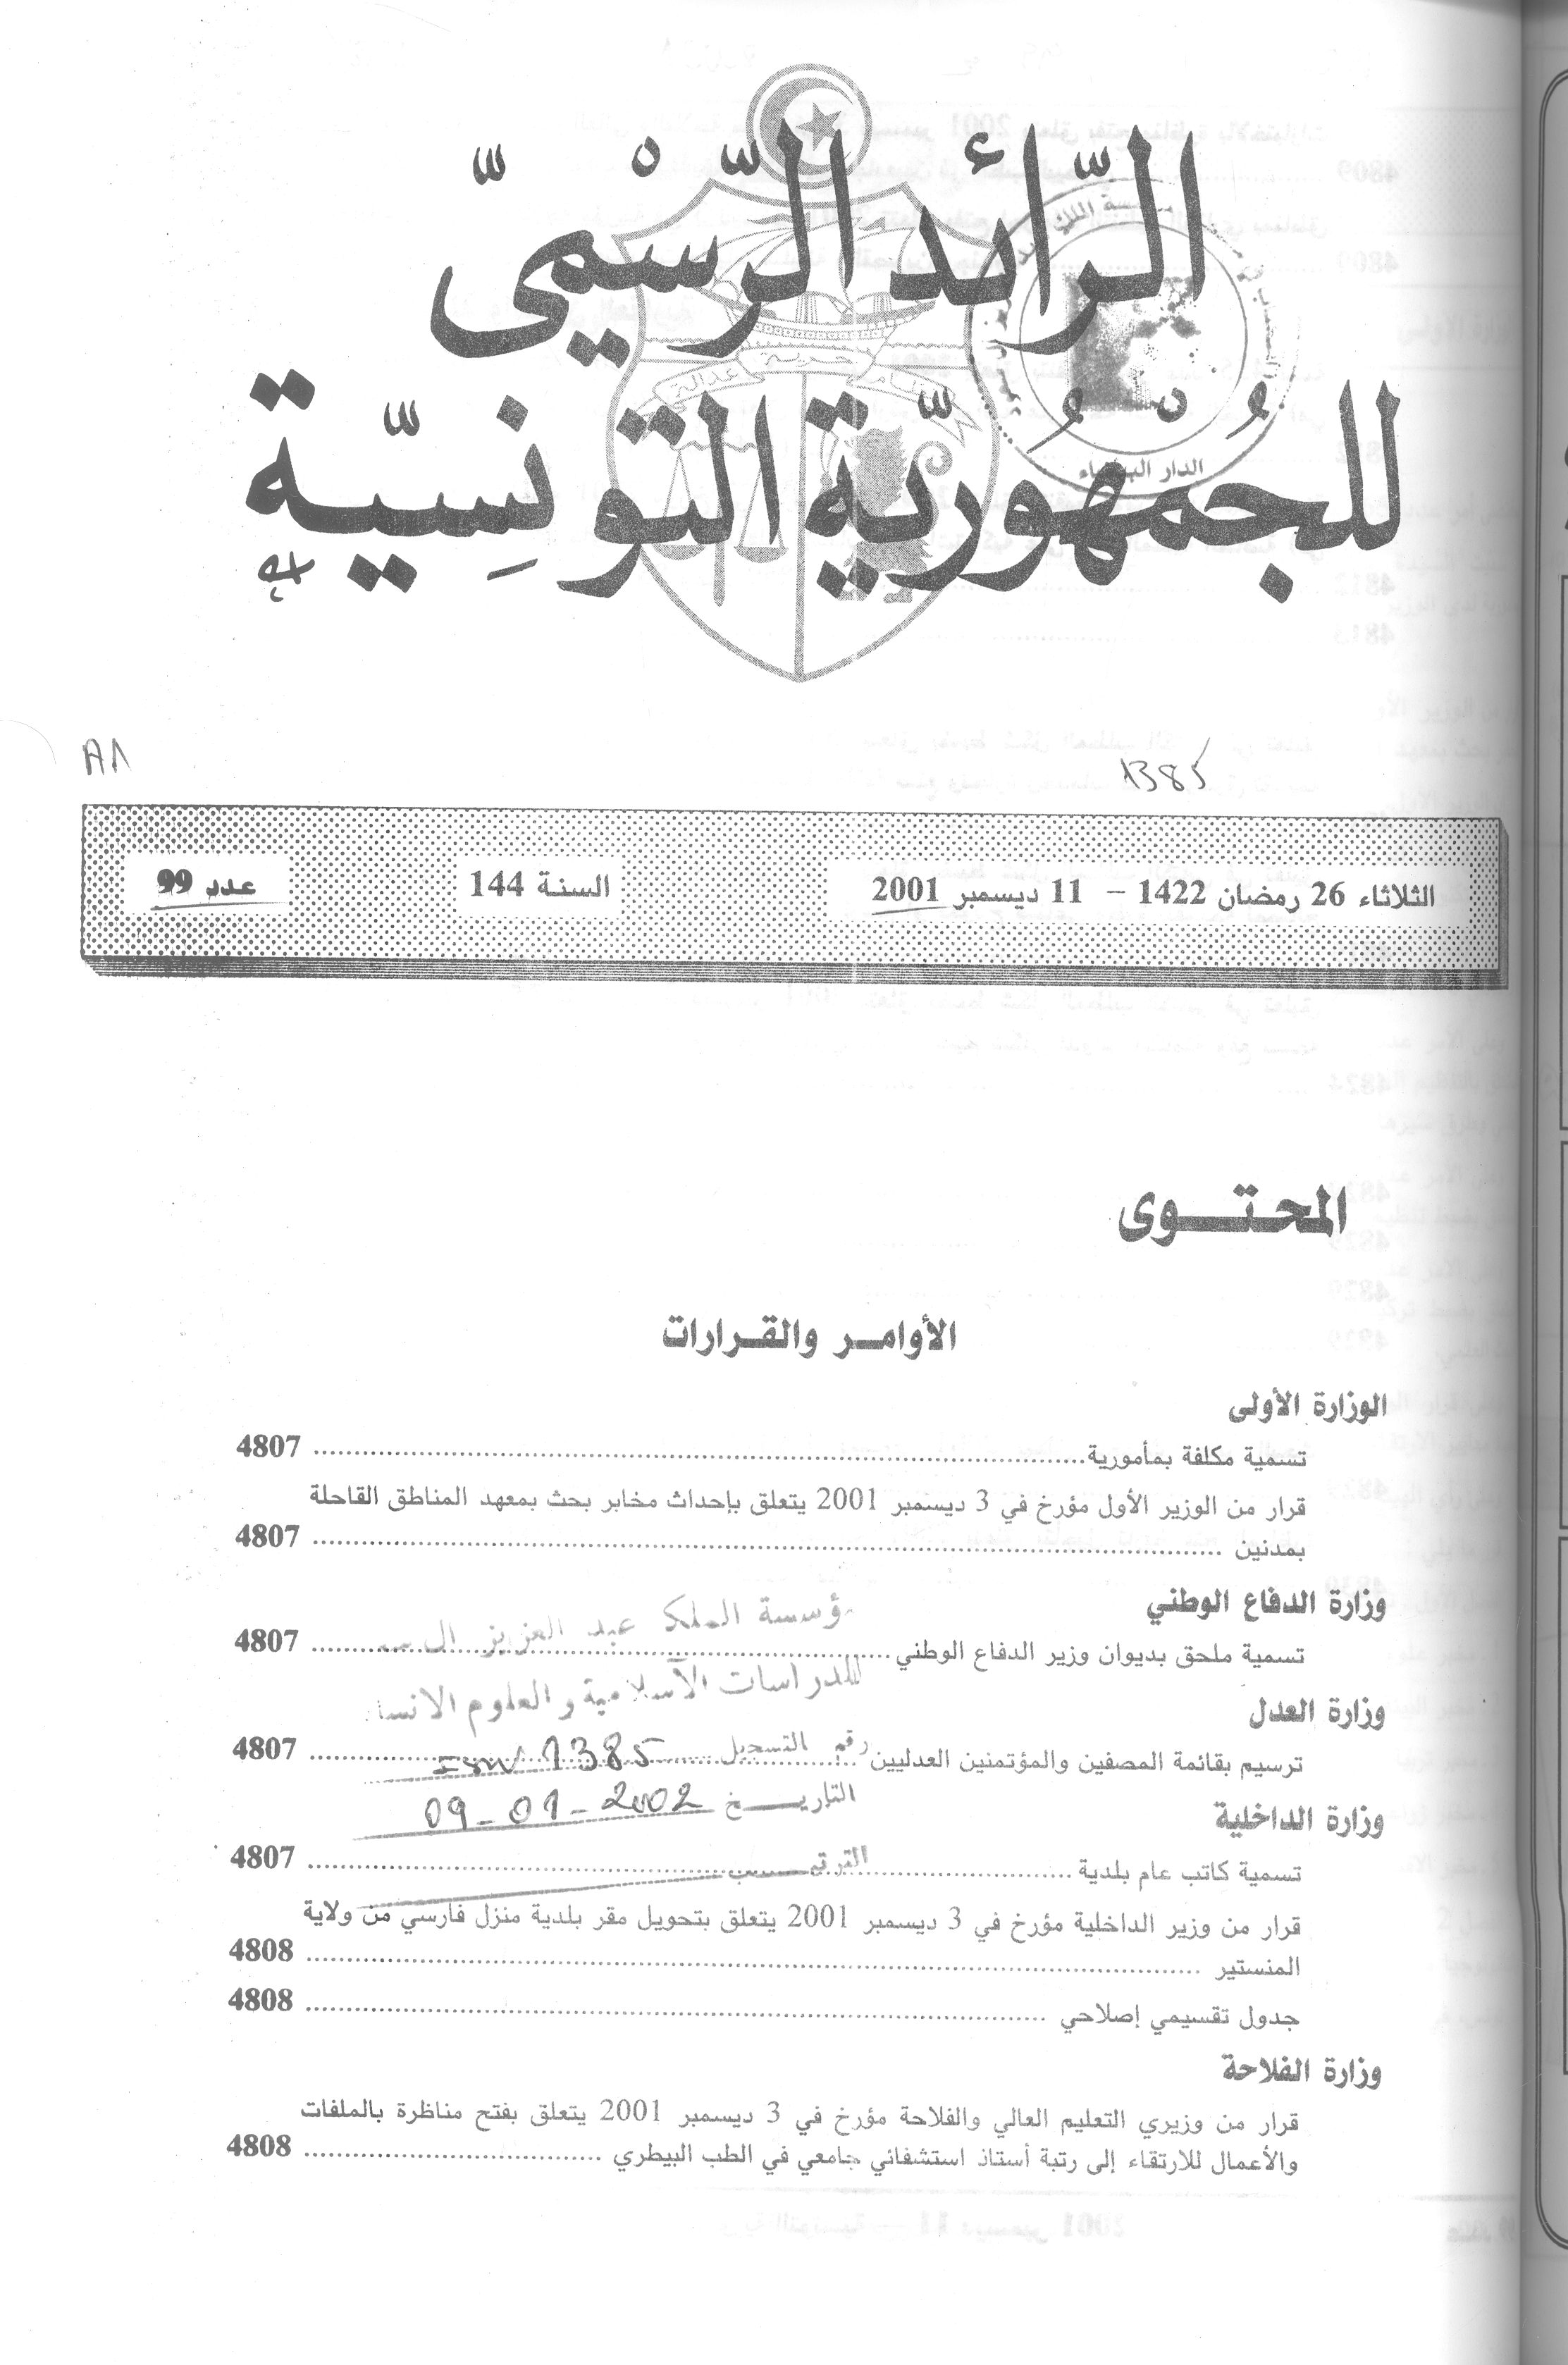 الرّائد الرّسْميّ
للجُمْهُوريّة التّونِسيّة
حرية
عدالة
الدار البيضاء
1385
الثلاثاء 26 رمضان 1422 – 11 ديسمبر 2001
السنة 144
عدد 99
المحتوى
الأوامر والقرارات
الوزارة الأولى
تسمية مكلفة بمأمورية 4807
قرار من الوزير الأول مؤرخ في 3 ديسمبر 2001 يتعلق بإحداث مخابر بحث بمعهد المناطق القاحلة
بمدنين 4807
وزارة الدفاع الوطني
مؤسسة الملك عبد العزيز
تسمية ملحق بديوان وزير الدفاع الوطني 4807
للدراسات الاسلامية والعلوم
وزارة العدل
ترسيم بقائمة المصفين والمؤتمنين العدليين 4807
رقم التسجيل 1385
التاريخ 09-01-2002
وزارة الداخلية
تسمية كاتب عام بلدية 4807
الترتيب
قرار من وزير الداخلية مؤرخ في 3 ديسمبر 2001 يتعلق بتحويل مقر بلدية منزل فارسي من ولاية
المنستير 4808
جدول تقسيمي إصلاحي 4808
وزارة الفلاحة
قرار من وزيري التعليم العالي والفلاحة مؤرخ في 3 ديسمبر 2001 يتعلق بفتح مناظرة بالملفات
والأعمال للارتقاء إلى رتبة أستاذ استشفائي جامعي في الطب البيطري 4808